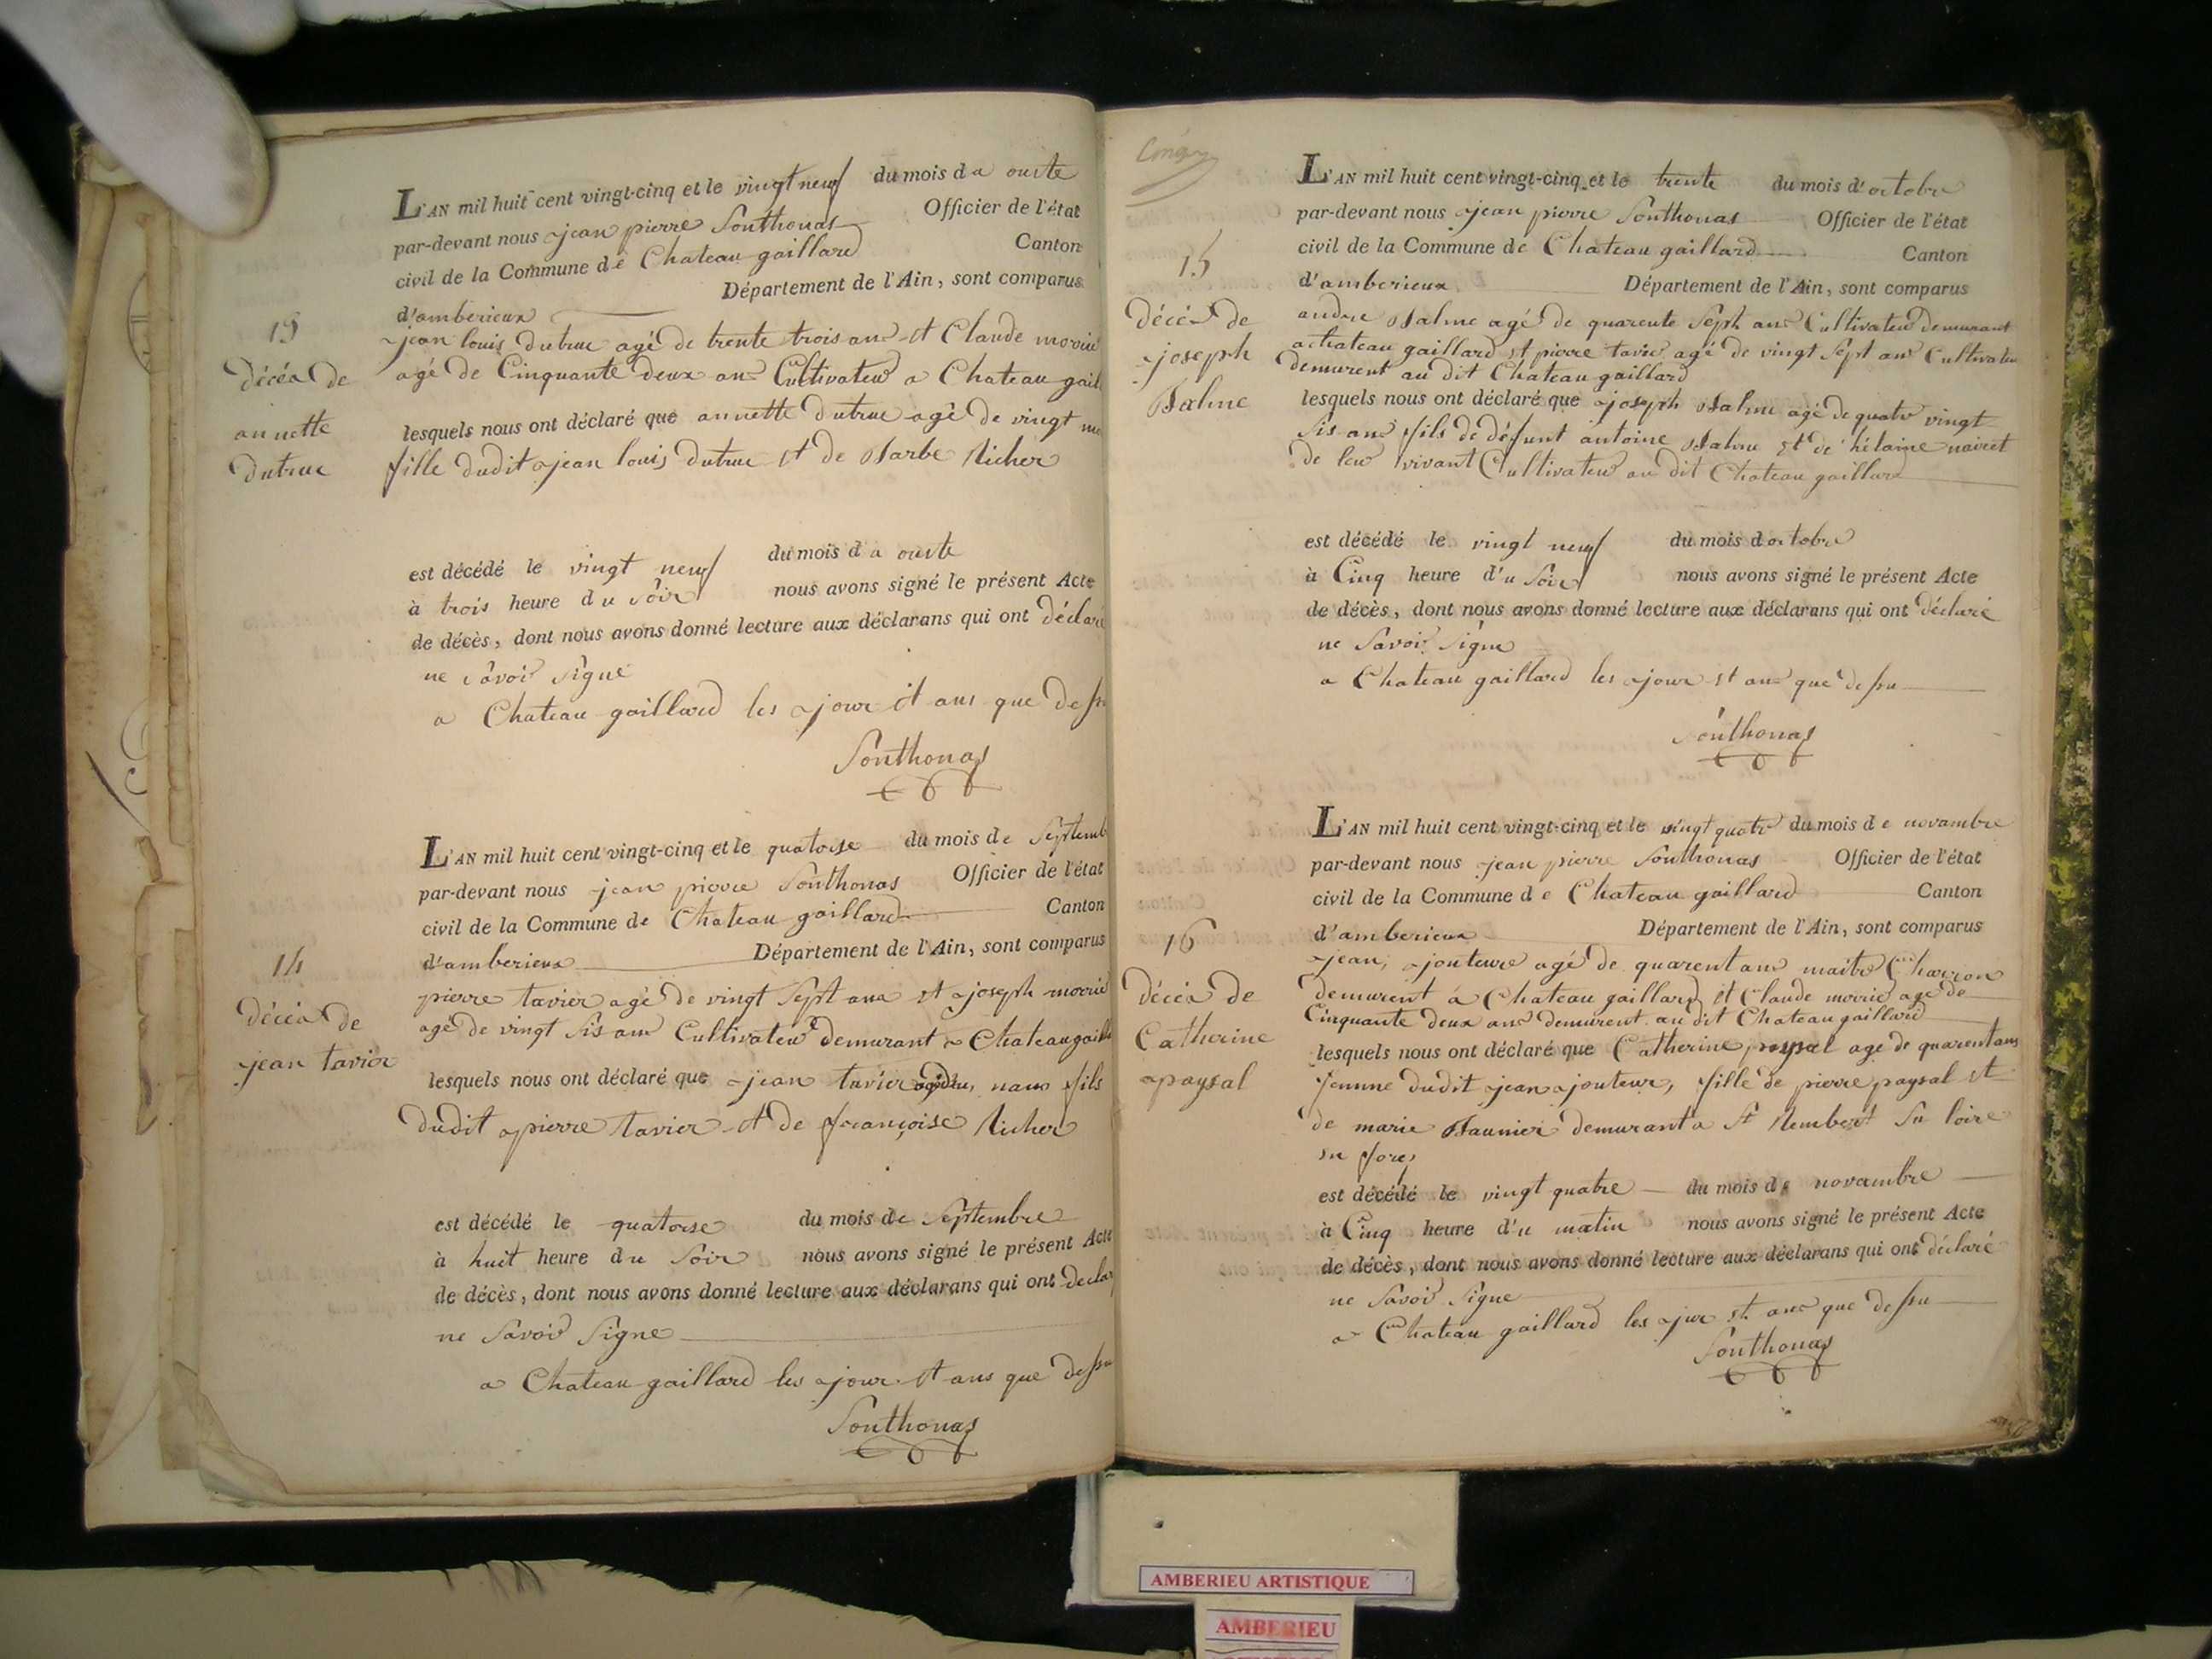 13
décès de
annette
dutruc
L'AN mil huit cent vingt-cinq et le vingt neuf du mois d a ouste
par-devant nous jean pierre Sonthonas Officier de l'état
civil de la Commune de Chateau gaillard Canton
d'amberieux Département de l'Ain, sont comparus
jean louis dutruc agé de trente trois ans et Claude
agé de Cinquante deux ans Cultivateur a Chateau gail
lesquels nous ont déclaré que annette dutruc agé de vingt
fille dudit jean louis dutruc et de Barbe Richer
est décédé le vingt neuf du mois d a ouste
à trois heure du Soir nous avons signé le présent Acte
de décès, dont nous avons donné lecture aux déclarans qui ont déclaré
ne savoir signé
a Chateau gaillard les jour et ans que dessu
Sonthonas
14
décès de
jean tavier
L'AN mil huit cent vingt-cinq et le quatorse du mois de Septemb
par-devant nous jean pierre Sonthonas Officier de l'état
civil de la Commune de Chateau gaillard Canton
d'amberieux Département de l'Ain, sont comparus
pierre tavier agé de vingt Sept ans et joseph morrier
agé de vingt Sis ans Cultivateur demurant a Chateau gaill
lesquels nous ont déclaré que jean tavier fils
dudit pierre tavier et de françoise Richer
est décédé le quatorse du mois de Septembre
à huit heure du Soir nous avons signé le présent Acte
de décès, dont nous avons donné lecture aux déclarans qui ont declar
ne Savoir Signe
a Chateau gaillard les jour et ans que dessu
Sonthonas
15
décés de
joseph
Balme
L'AN mil huit cent vingt-cinq et le trente du mois d'octobre
par-devant nous jean pierre Sonthonas Officier de l'état
civil de la Commune de Chateau gaillard Canton
d'amberieux Département de l'Ain, sont comparus
andre Balme agé de quarente Sept ans Cultivateur demurant
achateau gaillard et pierre tavier agé de vingt Sept ans Cultivateur
demurent au dit Chateau gaillard
lesquels nous ont déclaré que joseph Balme agé de quatre vingt
Sis ans fils de défunt antoine Balme et de hélaine
de leur vivant Cultivateur au dit Chateau gaillard
est décédé le vingt neuf du mois d octobre
à Cinq heure d'u Soir nous avons signé le présent Acte
de décès, dont nous avons donné lecture aux déclarans qui ont déclaré
ne Savoir Signe
a Chateau gaillard les jour et ans que dessu
Sonthonas
16
décés de
Catherine
paysal
L'AN mil huit cent vingt-cinq et le vingt quatr du mois d e novambre
par-devant nous jean pierre Sonthonas Officier de l'état
civil de la Commune d e Chateau gaillard Canton
d'amberieux Département de l'Ain, sont comparus
jean, jouteur agé de quarent ans maitre Charron
demurent a Chateau gaillard et Claude morrier agé de
Cinquante deux ans demurent au dit Chateau gaillard
lesquels nous ont déclaré que Catherine agé de quarent ans
femme dudit jean jouteur, fille de pierre paysal et
de marie Baunier demurant a St Rembert Su loire
en fores
est décédé le vingt quatre du mois de novambre
à Cinq heure d'u matin nous avons signé le présent Acte
de décès, dont nous avons donné lecture aux déclarans qui ont déclaré
ne Savoir Signe
a Chateau gaillard les jur et ans que dessu
Sonthonas
AMBERIEU ARTISTIQUE
AMBERIEU